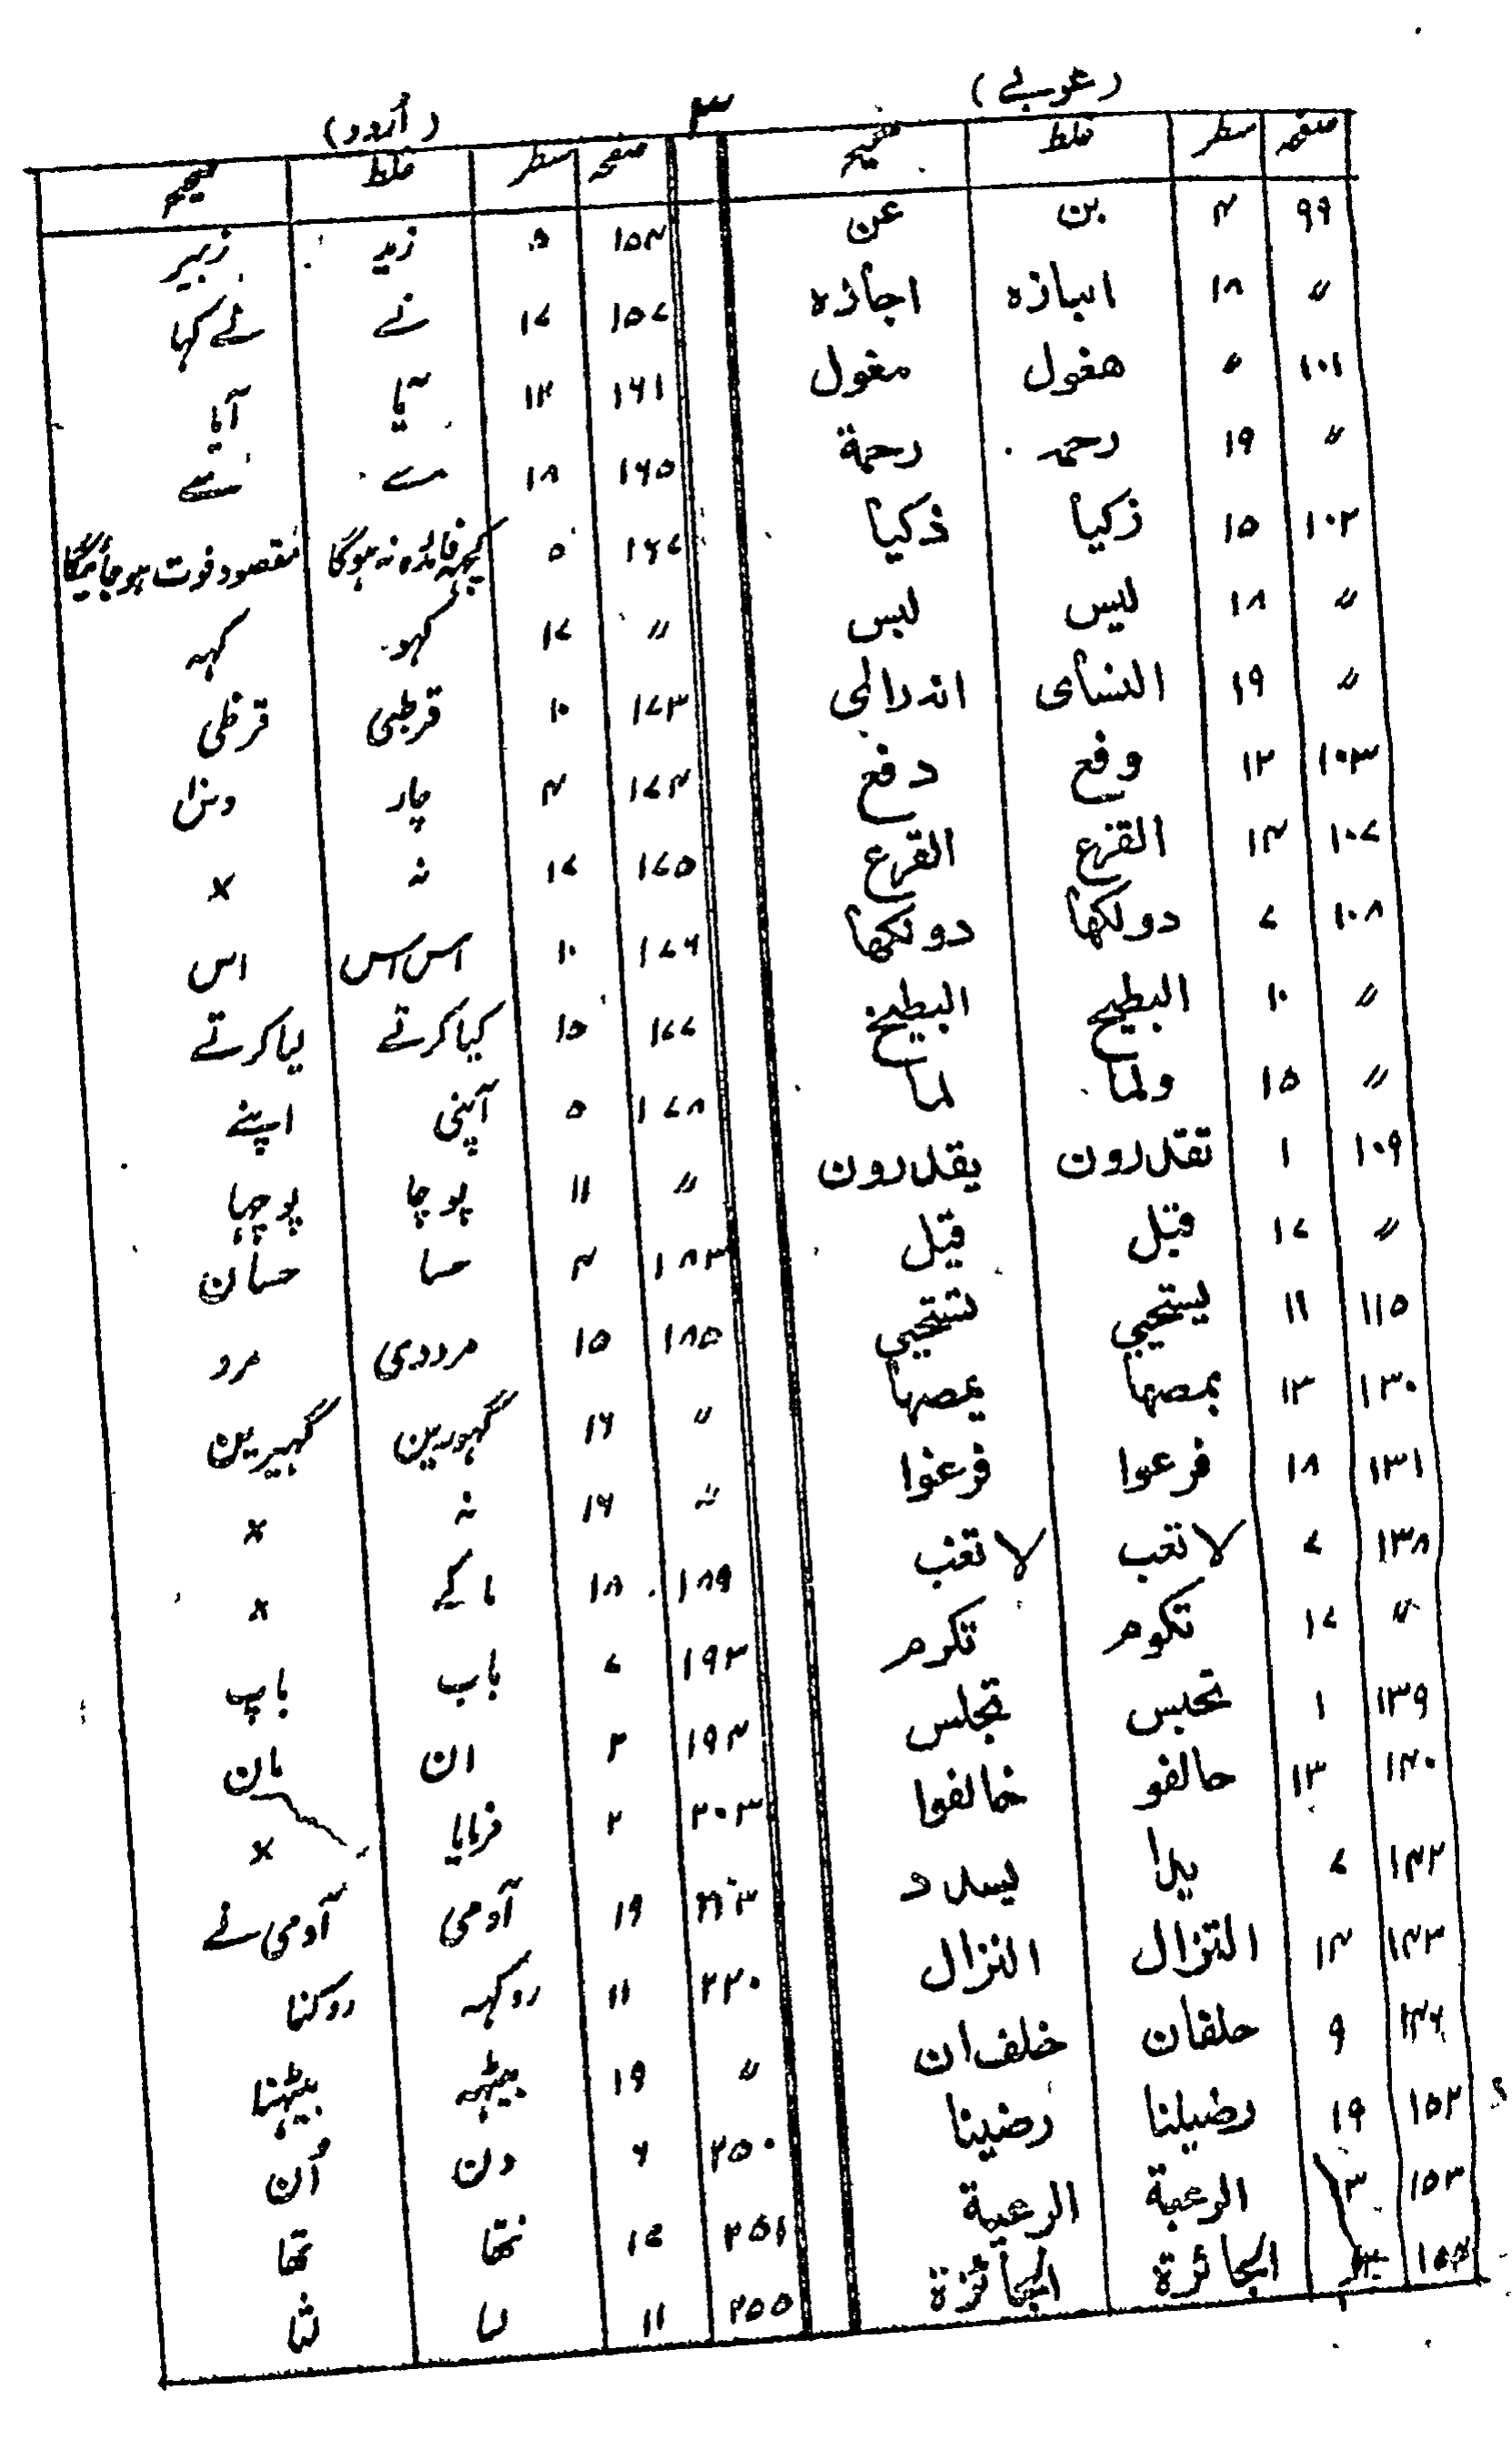 ۳
(عربی)
صفحہ سطر غلط صحیح
۹۹ ۴ بن عن
〃 ۱۸ اببازہ اجازہ
۱۰۱ 〃 ھغول مغول
〃 ۱۹ رحمہ رحمة
۱۰۲ ۱۵ زکیا ذکیا
〃 ۱۸ لیس لبس
〃 ۱۹ النسای اندرالی
۱۰۳ ۱۲ وفع دفع
۱۰۷ ۱۴ القزع القرع
۱۰۸ ۷ دولکھا دونکھا
〃 ۱۰ البطیح البطیخ
〃 ۱۵ ولما لما
۱۰۹ ۱ تقدرون یقدرون
〃 ۱۷ قبل قیل
۱۱۵ ۱۱ یستحیی تستحیی
۱۳۰ ۱۳ بمصھا یمصھا
۱۳۱ ۱۸ فرعوا فرغوا
۱۳۸ ۷ لا تعب لا تغب
〃 ۱۷ تکوم تکرم
۱۳۹ ۱ تحبس تجلس
۱۴۰ ۱۳ حالفو خالفوا
۱۴۲ ۷ یدا یسدد
۱۴۳ ۱۴ التزال النزال
۱۴۶ ۹ حلفان خلف ان
۱۵۲ ۱۹ رضیلنا رضینا
۱۵۳ ۳ الرعبة الرعیة
۱۵۴ الجائرة الجائزة
(اُردو)
صفحہ سطر غلط صحیح
۱۵۴ ۵ زید زبیر
۱۵۷ ۱۷ نے نے کہا
۱۶۱ ۱۲ آیا
۱۶۵ ۱۸ سے
۱۶۷ ۵ کچھ فائدہ نہ ہوگا مقصود فوت ہو جائیگا
〃 ۱۷ کہو کہہ
۱۷۳ ۱۰ قرطبی قرظی
۱۷۴ ۴ چار
۱۷۵ ۱۷ نہ ×
۱۷۶ ۱۰ اس اس اس
۱۷۷ ۱۵ کیا کرتے لیا کرتے
۱۷۸ ۵ آپنی اپنے
〃 ۱۱ پوچا پوچہا
۱۸۳ ۴ حسا حسان
۱۸۵ ۱۵ مرددی مرد
〃 ۱۶ گہورین گہیرین
〃 ۱۶ نہ ×
۱۸۹ ۱۸ ما کے ×
۱۹۳ ۷ باب باپ
۱۹۴ ۲ ان مان
۲۰۳ ۲ فرمایا ×
۱۹ آدمی آدمی نے
۲۲۰ ۱۱ روکہہ روکنا
〃 ۱۹ بیٹہہ بیٹہنا
۲۵۰ ۶ دن اُن
۲۵۱ ۱۷ نھا تھا
۲۵۵ ۱۱